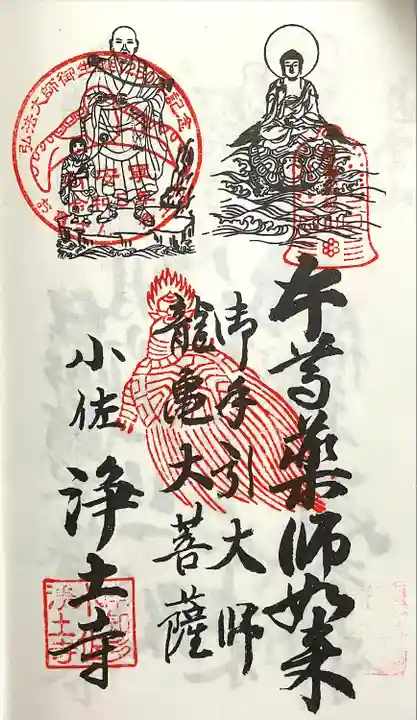 本尊薬師如来
御手引大師
龍亀大菩薩
小佐 浄土寺
弘法大師御生
記念
浄土寺